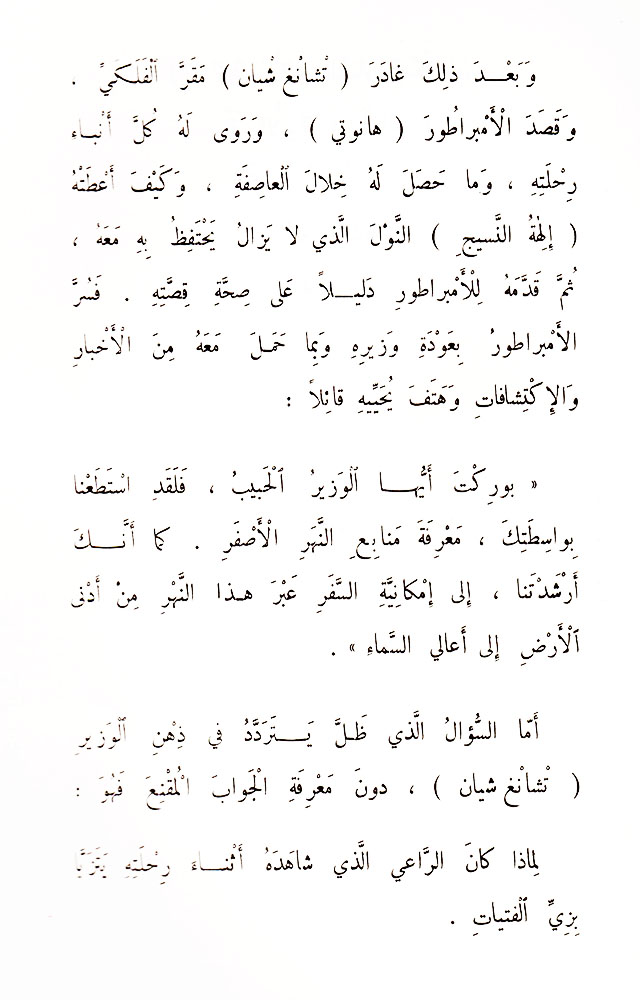 وَبَعْـــدَ ذلِكَ غادَرَ ( تْشانْغ شْيان ) مَقَرَّ ٱلْفَلَكيِّ .
وَقَصَدَ الْأَمْبراطُورَ ( هانوتي ) ، وَرَوى لَهُ كُلَّ أَنْباء
رِحْلَتِهِ ، وَما حَصَلَ لَهُ خِلالَ ٱلعاصِفَةِ ، وَكَيْفَ أَعْطَتْهُ
( إِلهَةُ النَّسيجِ ) النَّوْلَ الَّذي لا يَزالُ يَحْتَفِظُ بِهِ مَعَهُ ،
ثُمَّ قَدَّمَهُ لِلْأَمْبراطورِ دَليـــلاً عَلى صِحَّةِ قِصَّتِهِ . فَسُرَّ
الأَمْبراطورُ بِعَوْدَةِ وَزيرِهِ وَبِما حَمَـلَ مَعَهُ مِنَ الْأَخْبارِ
وَالإِكْتِشافاتِ وَهَتَفَ يُحَيِّيهِ قائِلاً :
« بورِكْتَ أَيُّهـــا ٱلْوَزيرُ ٱلْحَبيبُ ، فَلَقَدِ اسْتَطَعْنا
بِواسِطَتِكَ ، مَعْرِفَةَ مَنابِعِ النَّهَرِ الْأَصْفَرِ . كَما أَنَّـــكَ
أَرْشَدْتَنا ، إِلى إِمْكانِيَّةِ السَّفَرِ عَبْرَ هـذا النَّهْرِ مِنْ أَدْنى
ٱلْأَرْضِ إِلى أَعالي السَّماءِ » .
أَمّا السُّؤالُ الَّذي ظَـلَّ يَـــتَرَدَّدُ في ذِهْنِ ٱلْوَزيرِ
( تْشانْغ شيان ) ، دونَ مَعْرِفَةِ الْجَوابَ الْمُقْنِعَ فَهُوَ :
لِماذا كانَ الرَّاعي الَّذي شاهَدَهُ أَثْنـــاءَ رِحْلَتِهِ يَتَزَيَّا
بِزِيِّ ٱلْفتياتِ .